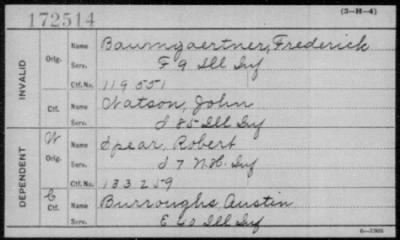 172514
(3-H-4)
INVALID
Orig.
Name Baumgaertner, Frederick
Serv. F 9 Ill Inf
Ctf. No. 119551
Ctf.
Name Watson, John
Serv. I 85 Ill Inf
DEPENDENT
W
Orig.
Name Spear, Robert
Serv. I 7 N.H. Inf
Ctf. No. 133259
C
Ctf.
Name Burroughs Austin
Serv. E 60 Ill Inf